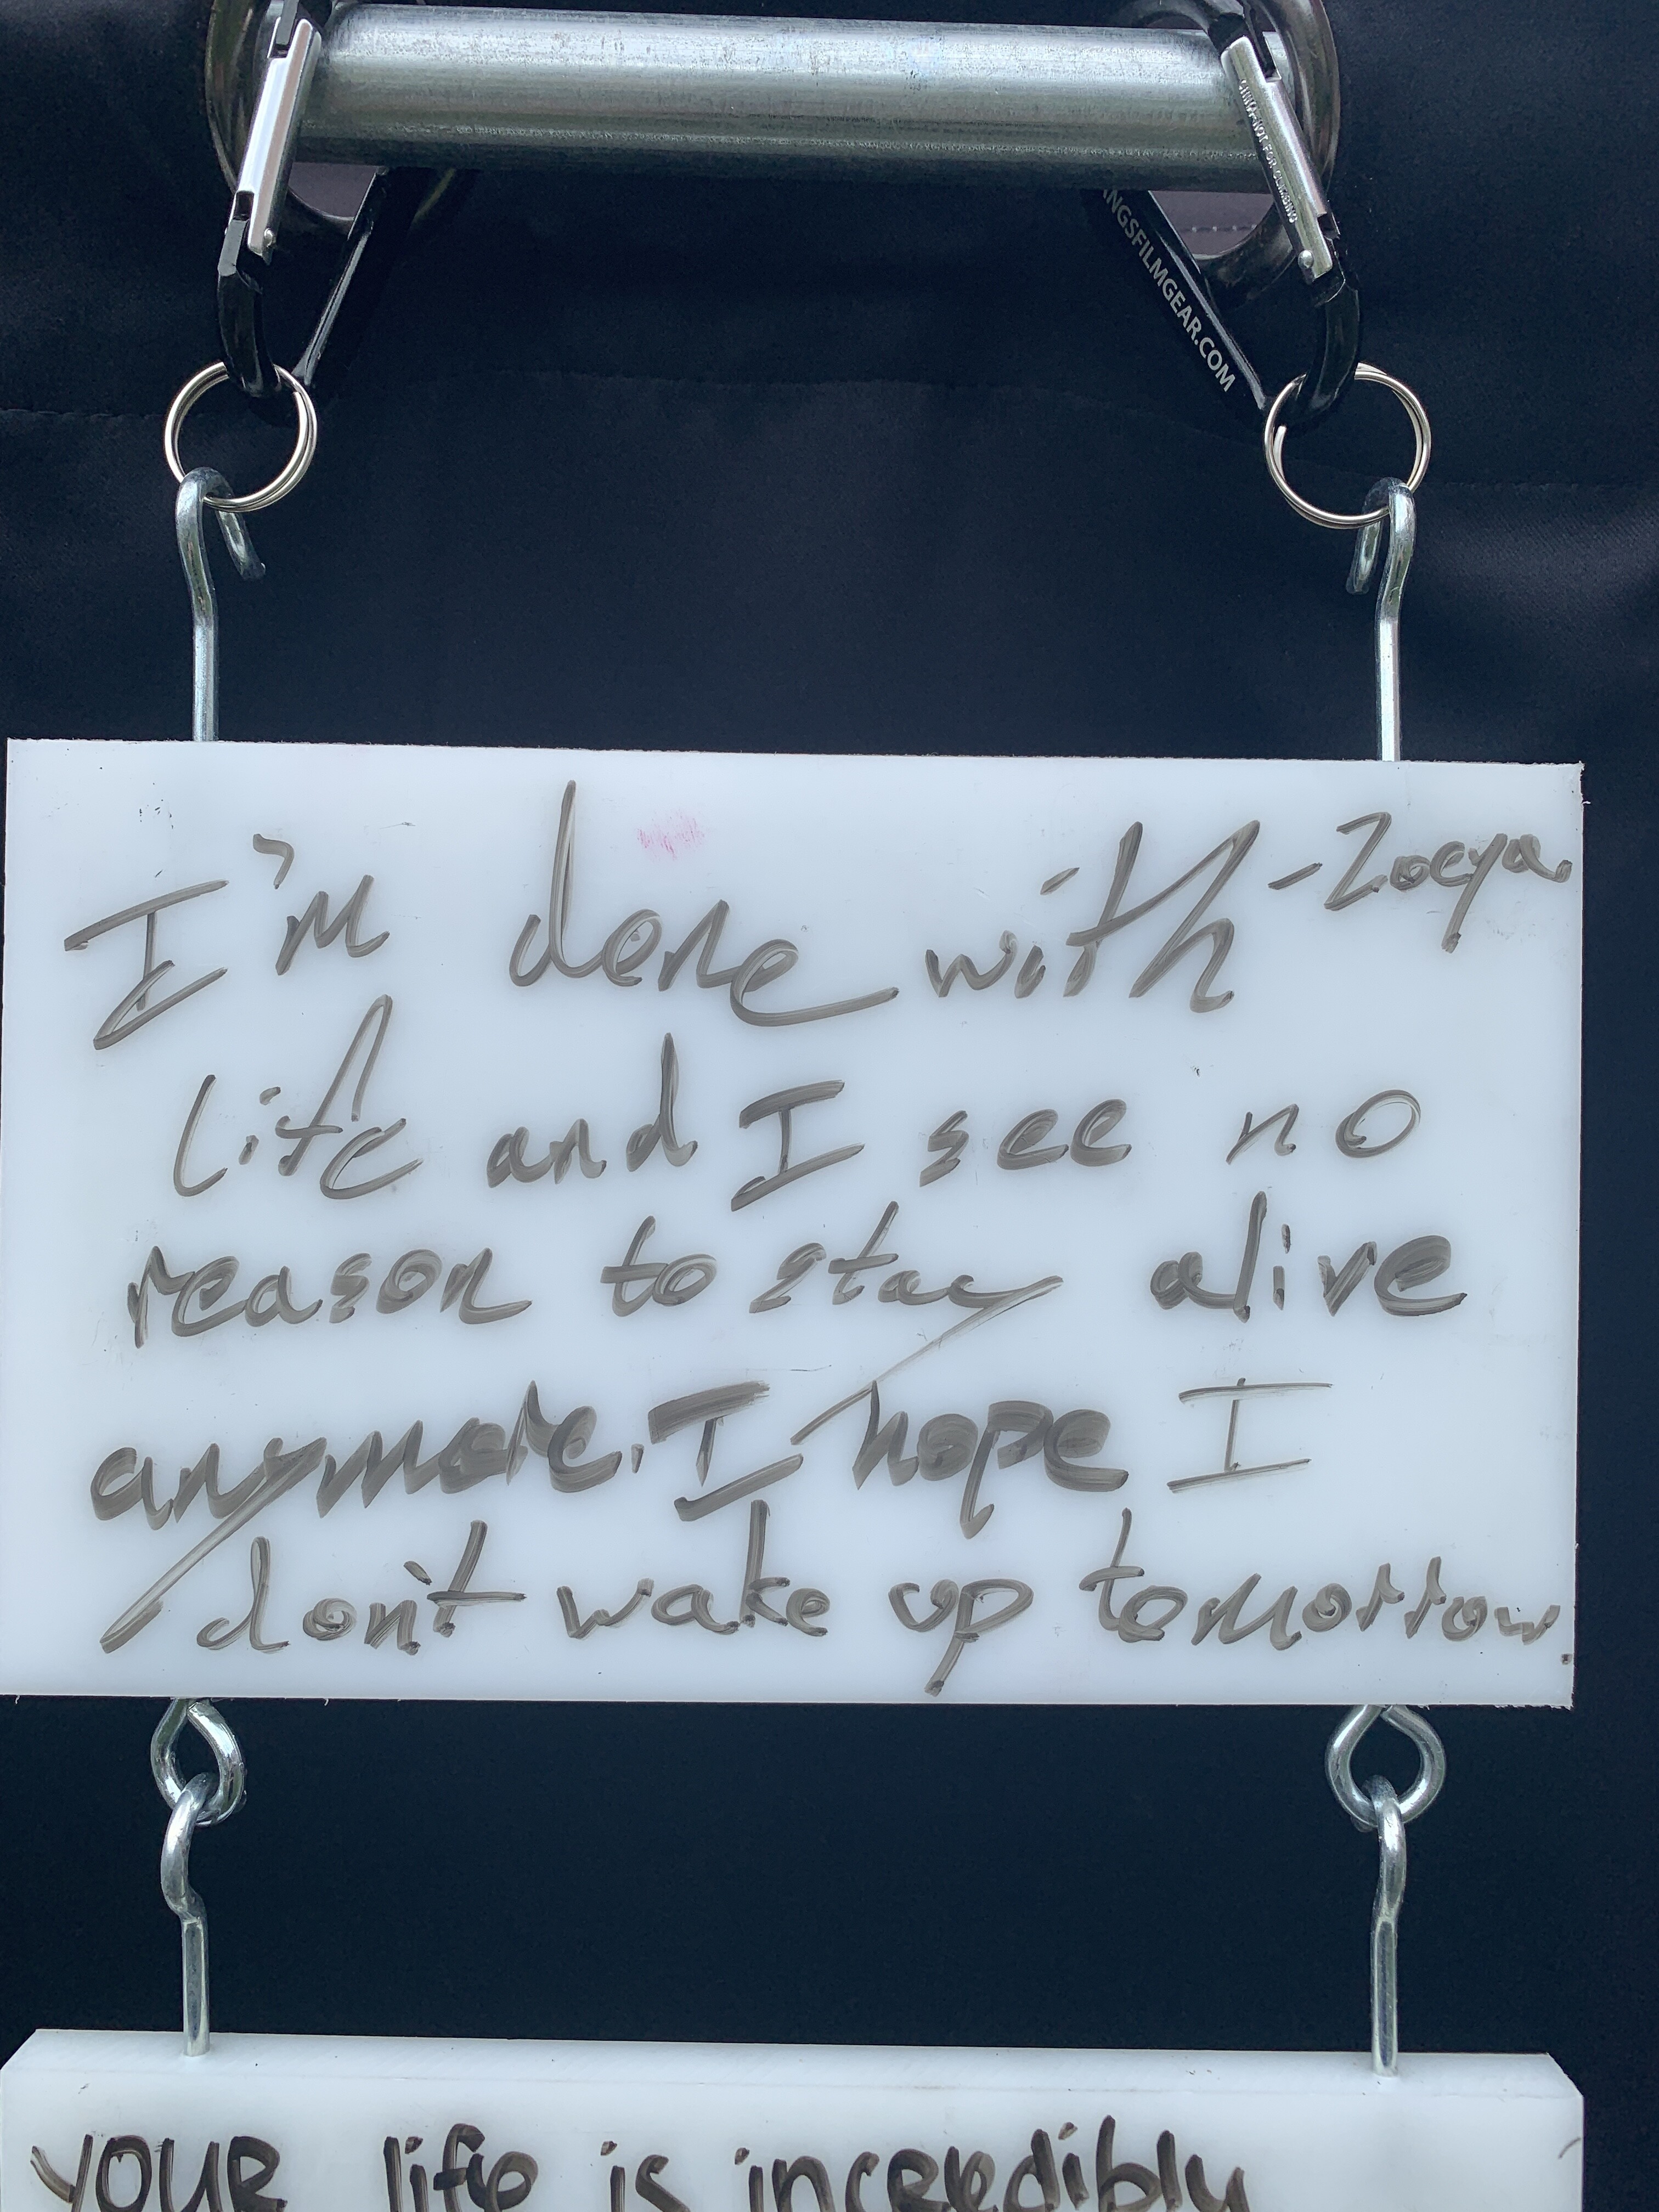 CHINA-NOT FOR CLIMBING
NGSFILMGEAR.COM
I'm done with -Zoeya
life and I see no
reason to stay alive
anymore. I hope I
don't wake up tomorrow.
YOUR life is incredibly